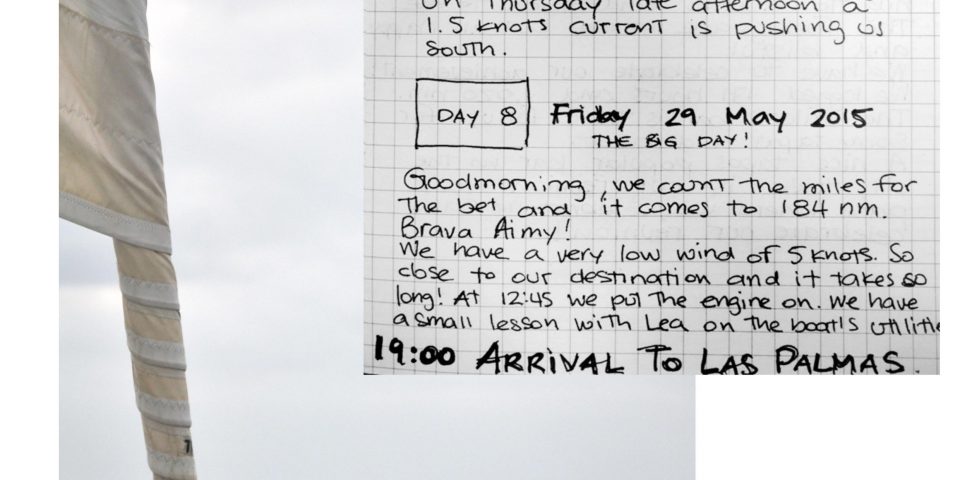 On Thursday late afternoon a
1.5 knots current is pushing us
south.
DAY 8
Friday 29 May 2015
THE BIG DAY!
Goodmorning, we count the miles for
the bet and it comes to 184 nm.
Brava Aimy!
We have a very low wind of 5 knots. So
close to our destination and it takes so
long! At 12:45 we put the engine on. We have
a small lesson with Lea on the boat's
19:00 ARRIVAL TO LAS PALMAS.